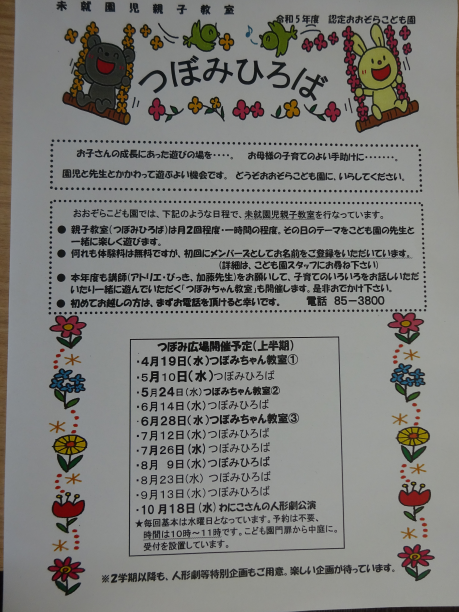 未就園児親子教室
令和5年度 認定おおぞらこども園
つぼみひろば
お子さんの成長にあった遊びの場を・・・・。 お母様の子育てのよい手助けに・・・・・・・。
園児と先生とかかわって遊ぶよい機会です。どうぞおおぞらこども園に、いらしてください。
おおぞらこども園では、下記のような日程で、未就園児親子教室を行なっています。
● 親子教室(つぼみひろば)は月2回程度・一時間の程度、その日のテーマをこども園の先生と
一緒に楽しく遊びます。
● 何れも体験料は無料ですが、初回にメンバーズとしてお名前をご登録をいただいています。
(詳細は、こども園スタッフにお尋ね下さい)
● 本年度も講師(アトリエ・ぴっき、加藤先生)をお願いして、子育てのいろいろをお話しいただ
いたり一緒に遊んでいただく「つぼみちゃん教室」も開催します。是非おでかけ下さい。
● 初めてお越しの方は、まずお電話を頂けると幸いです。 電話 85-3800
つぼみ広場開催予定(上半期)
・4月19日(水)つぼみちゃん教室①
・5月10日(水)つぼみひろば
・5月24日(水)つぼみちゃん教室②
・6月14日(水)つぼみひろば
・6月28日(水)つぼみちゃん教室③
・7月12日(水)つぼみひろば
・7月26日(水)つぼみひろば
・8月 9日(水)つぼみひろば
・8月23日(水)つぼみひろば
・9月13日(水)つぼみひろば
・10月18日(水)わにこさんの人形劇公演
★毎回基本は水曜日となっています。予約は不要、
時間は10時〜11時です。こども園門扉から中庭に。
受付を設置しています。
※2学期以降も、人形劇等特別企画もご用意。楽しい企画が待っています。